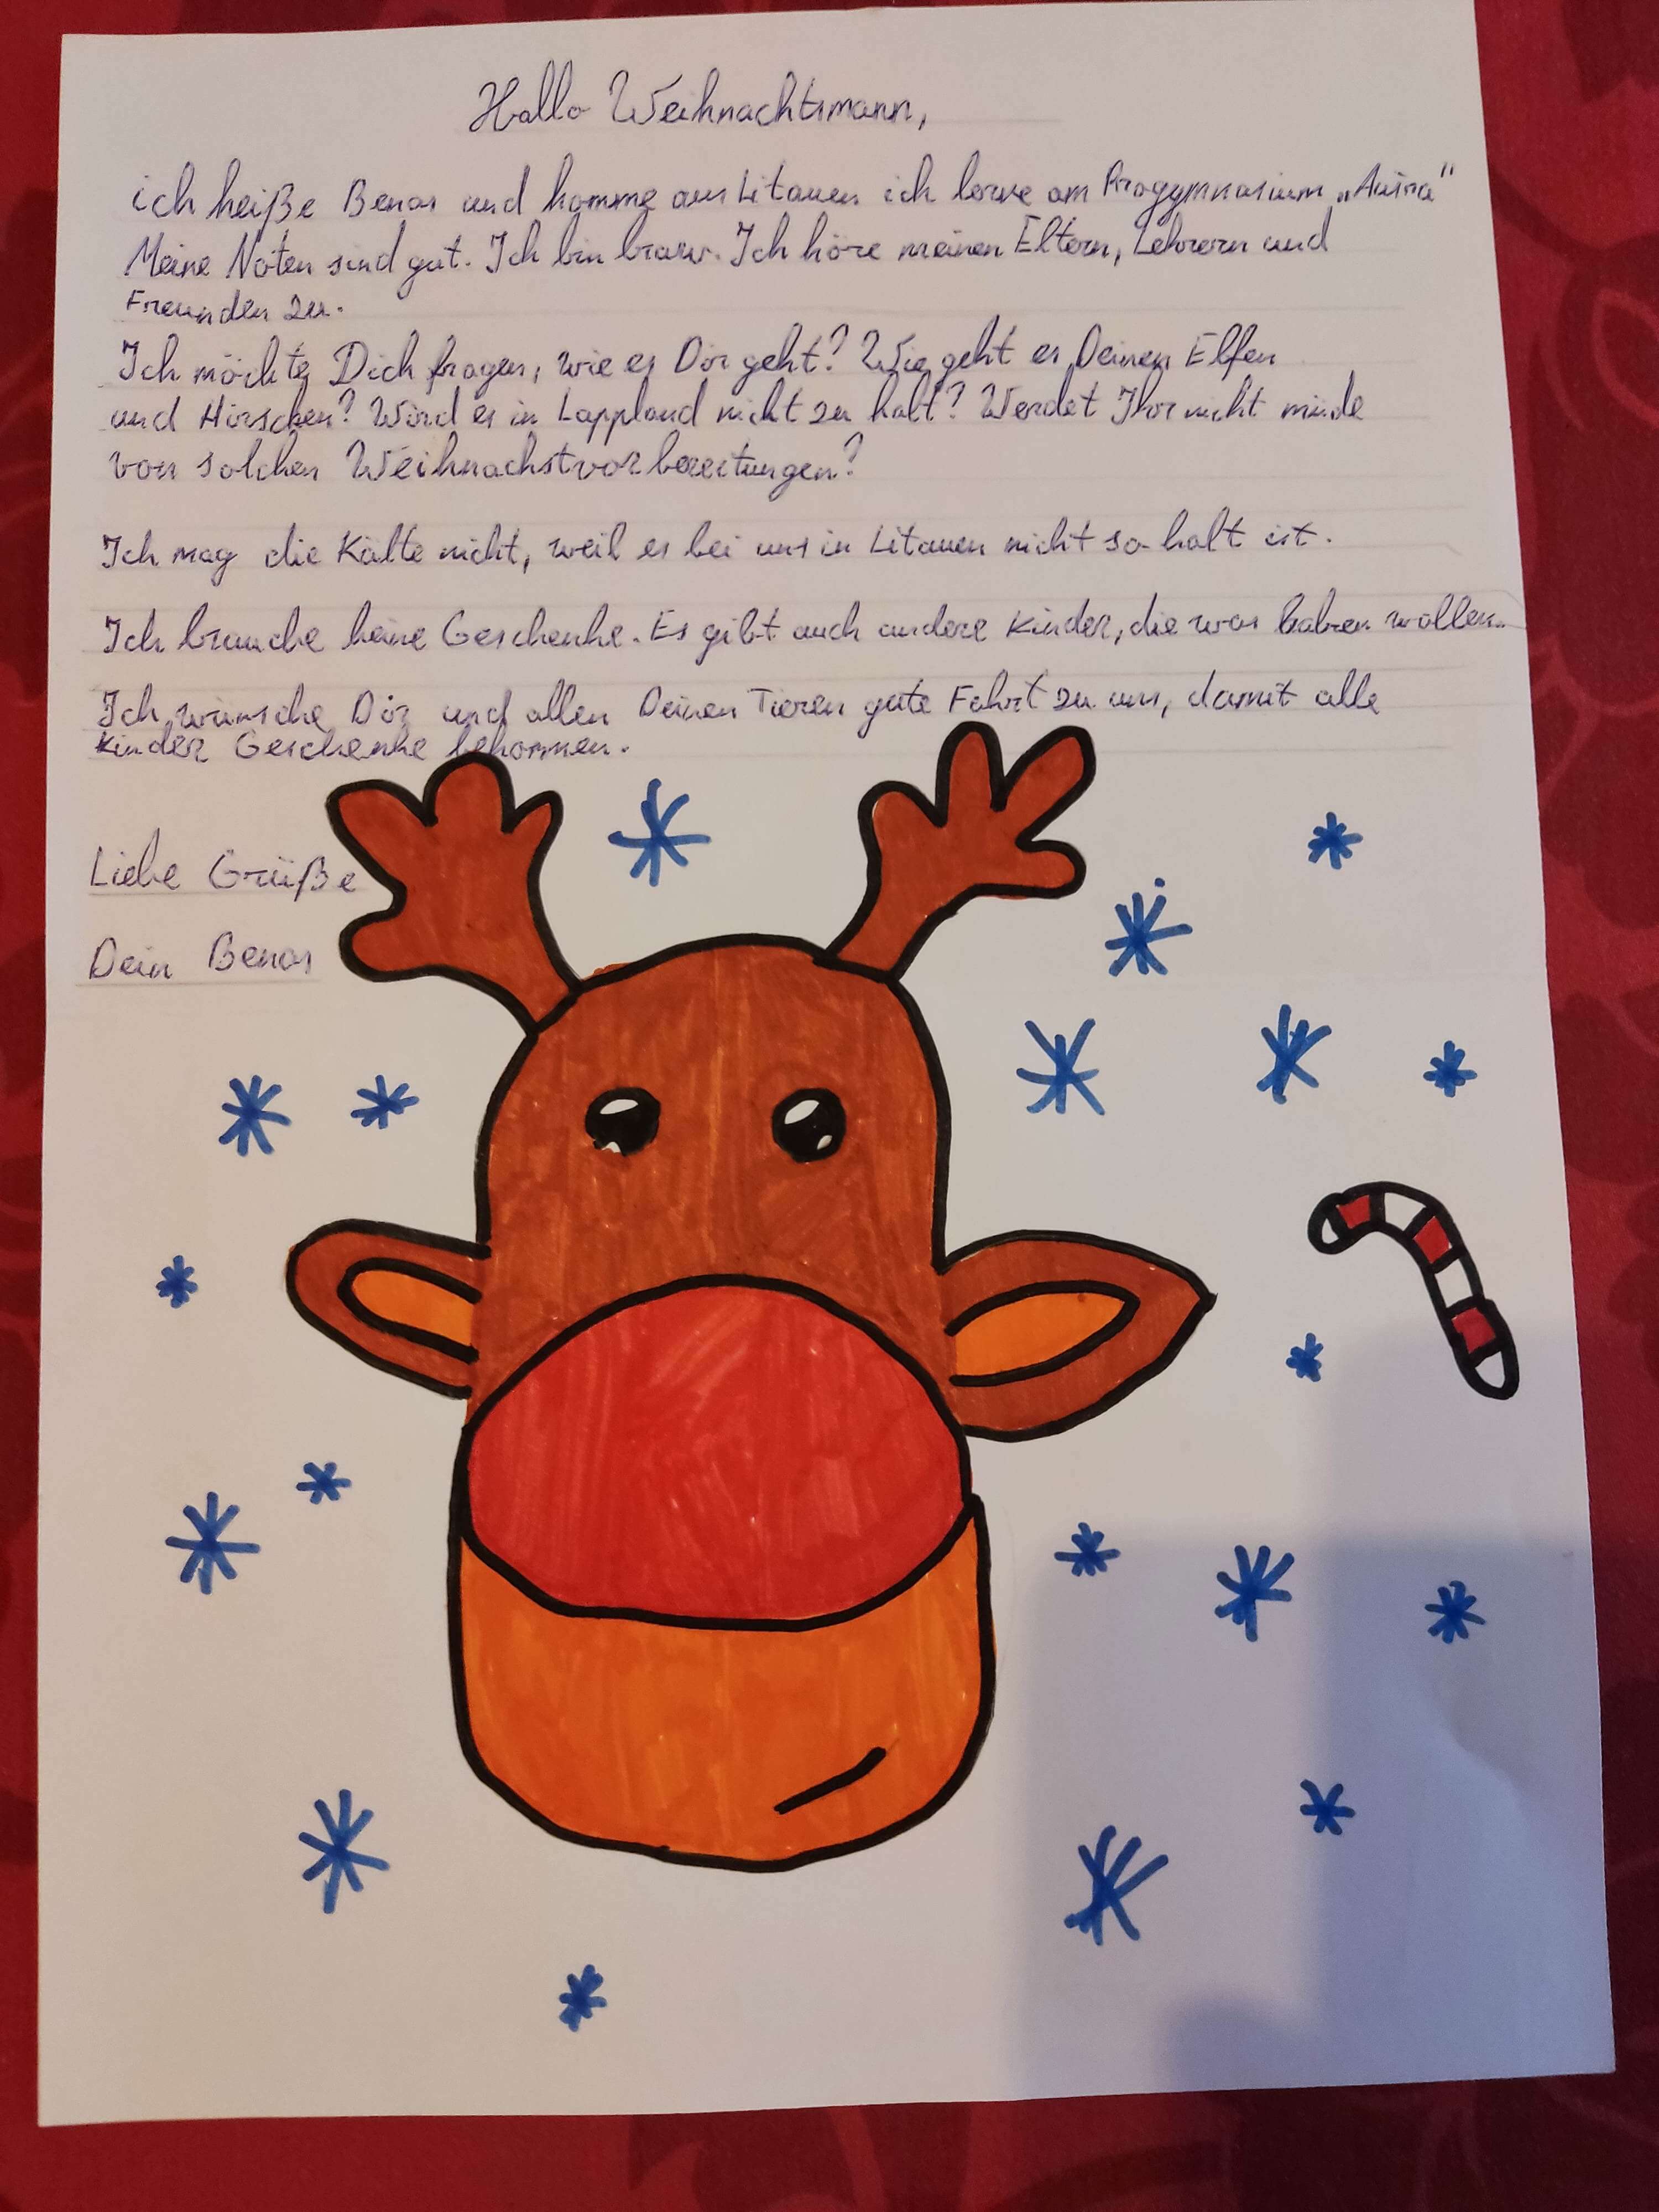 Hallo Weihnachtsmann,
ich heiße Benas und komme aus Litauen ich lerne am Progymnasium „Aušra“
Meine Noten sind gut. Ich bin braw. Ich höre meinen Eltern, Lehrern und
Freunden zu.
Ich möchte Dich fragen, wie es Dir geht? Wie geht es Deinen Elfen
und Hirschen? Wird es in Lappland nicht zu kalt? Werdet Ihr nicht müde
von solchen Weihnachstvorbereitungen?
Ich mag die Kälte nicht, weil es bei uns in Litauen nicht so kalt ist.
Ich brauche keine Geschenke. Es gibt auch andere Kinder, die was haben wollen.
Ich wünsche Dir und allen Deinen Tieren gute Fahrt zu uns, damit alle
Kinder Geschenke bekommen.
Liebe Grüße
Dein Benas